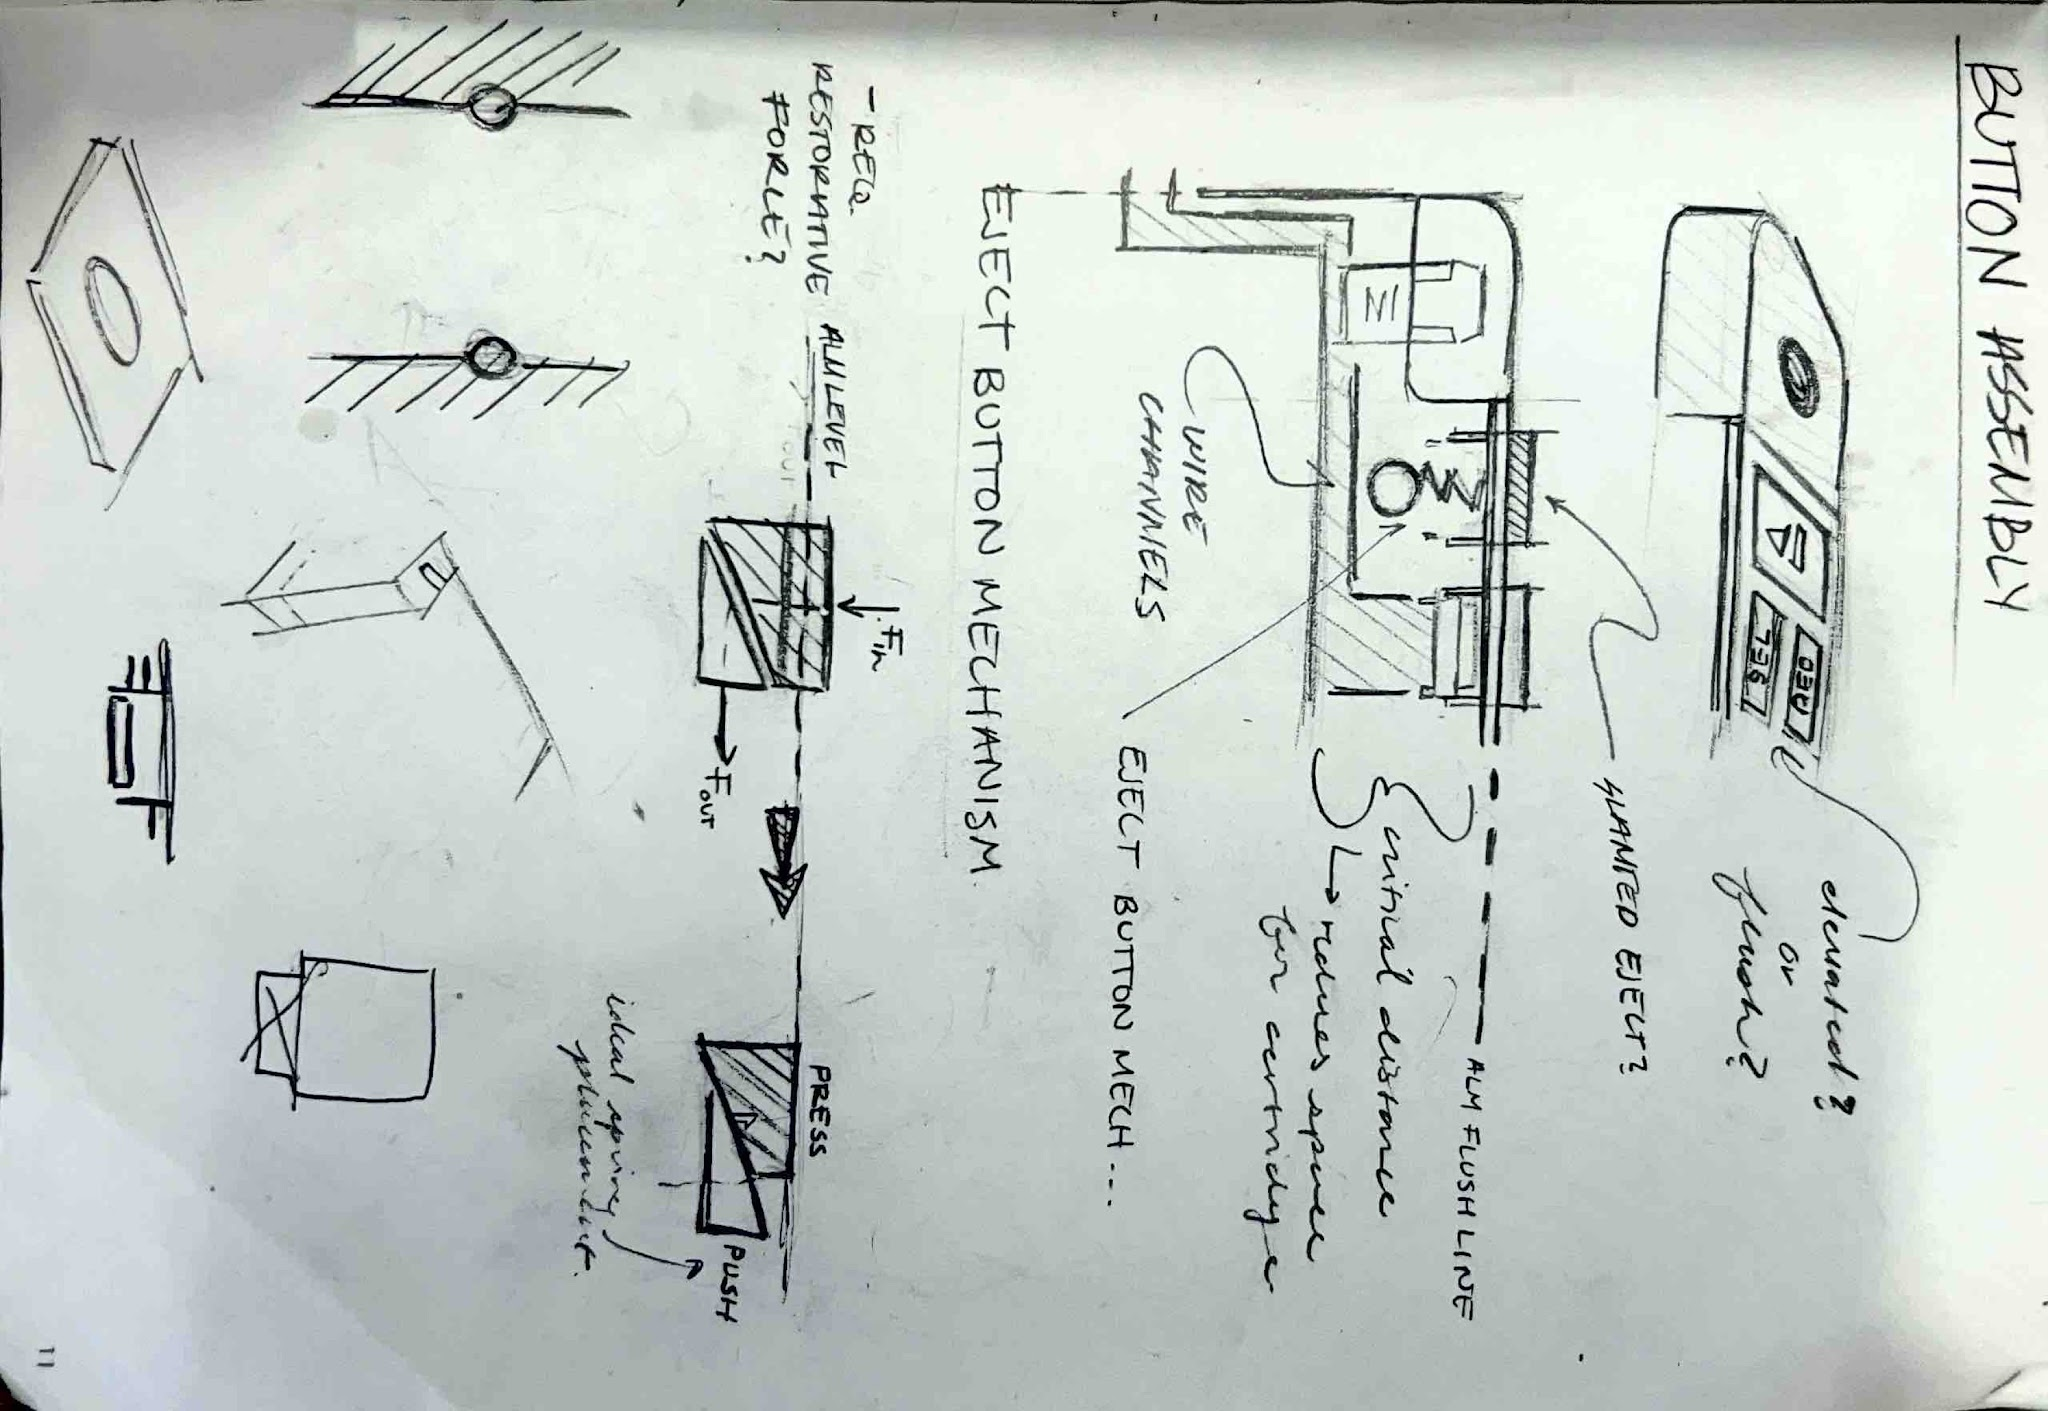 BUTTON ASSEMBLY
REC
SEL
elevated?
or
flush?
SLANTED EJECT?
ALM FLUSH LINE
critical distance
reduces space
for cartridge
WIRE
CHANNELS
EJECT BUTTON MECH...
EJECT BUTTON MECHANISM.
- REQ.
RESTORATIVE
FORCE?
ALM LEVEL
Fin
FOUT
PRESS
PUSH
ideal spring
placement.
11